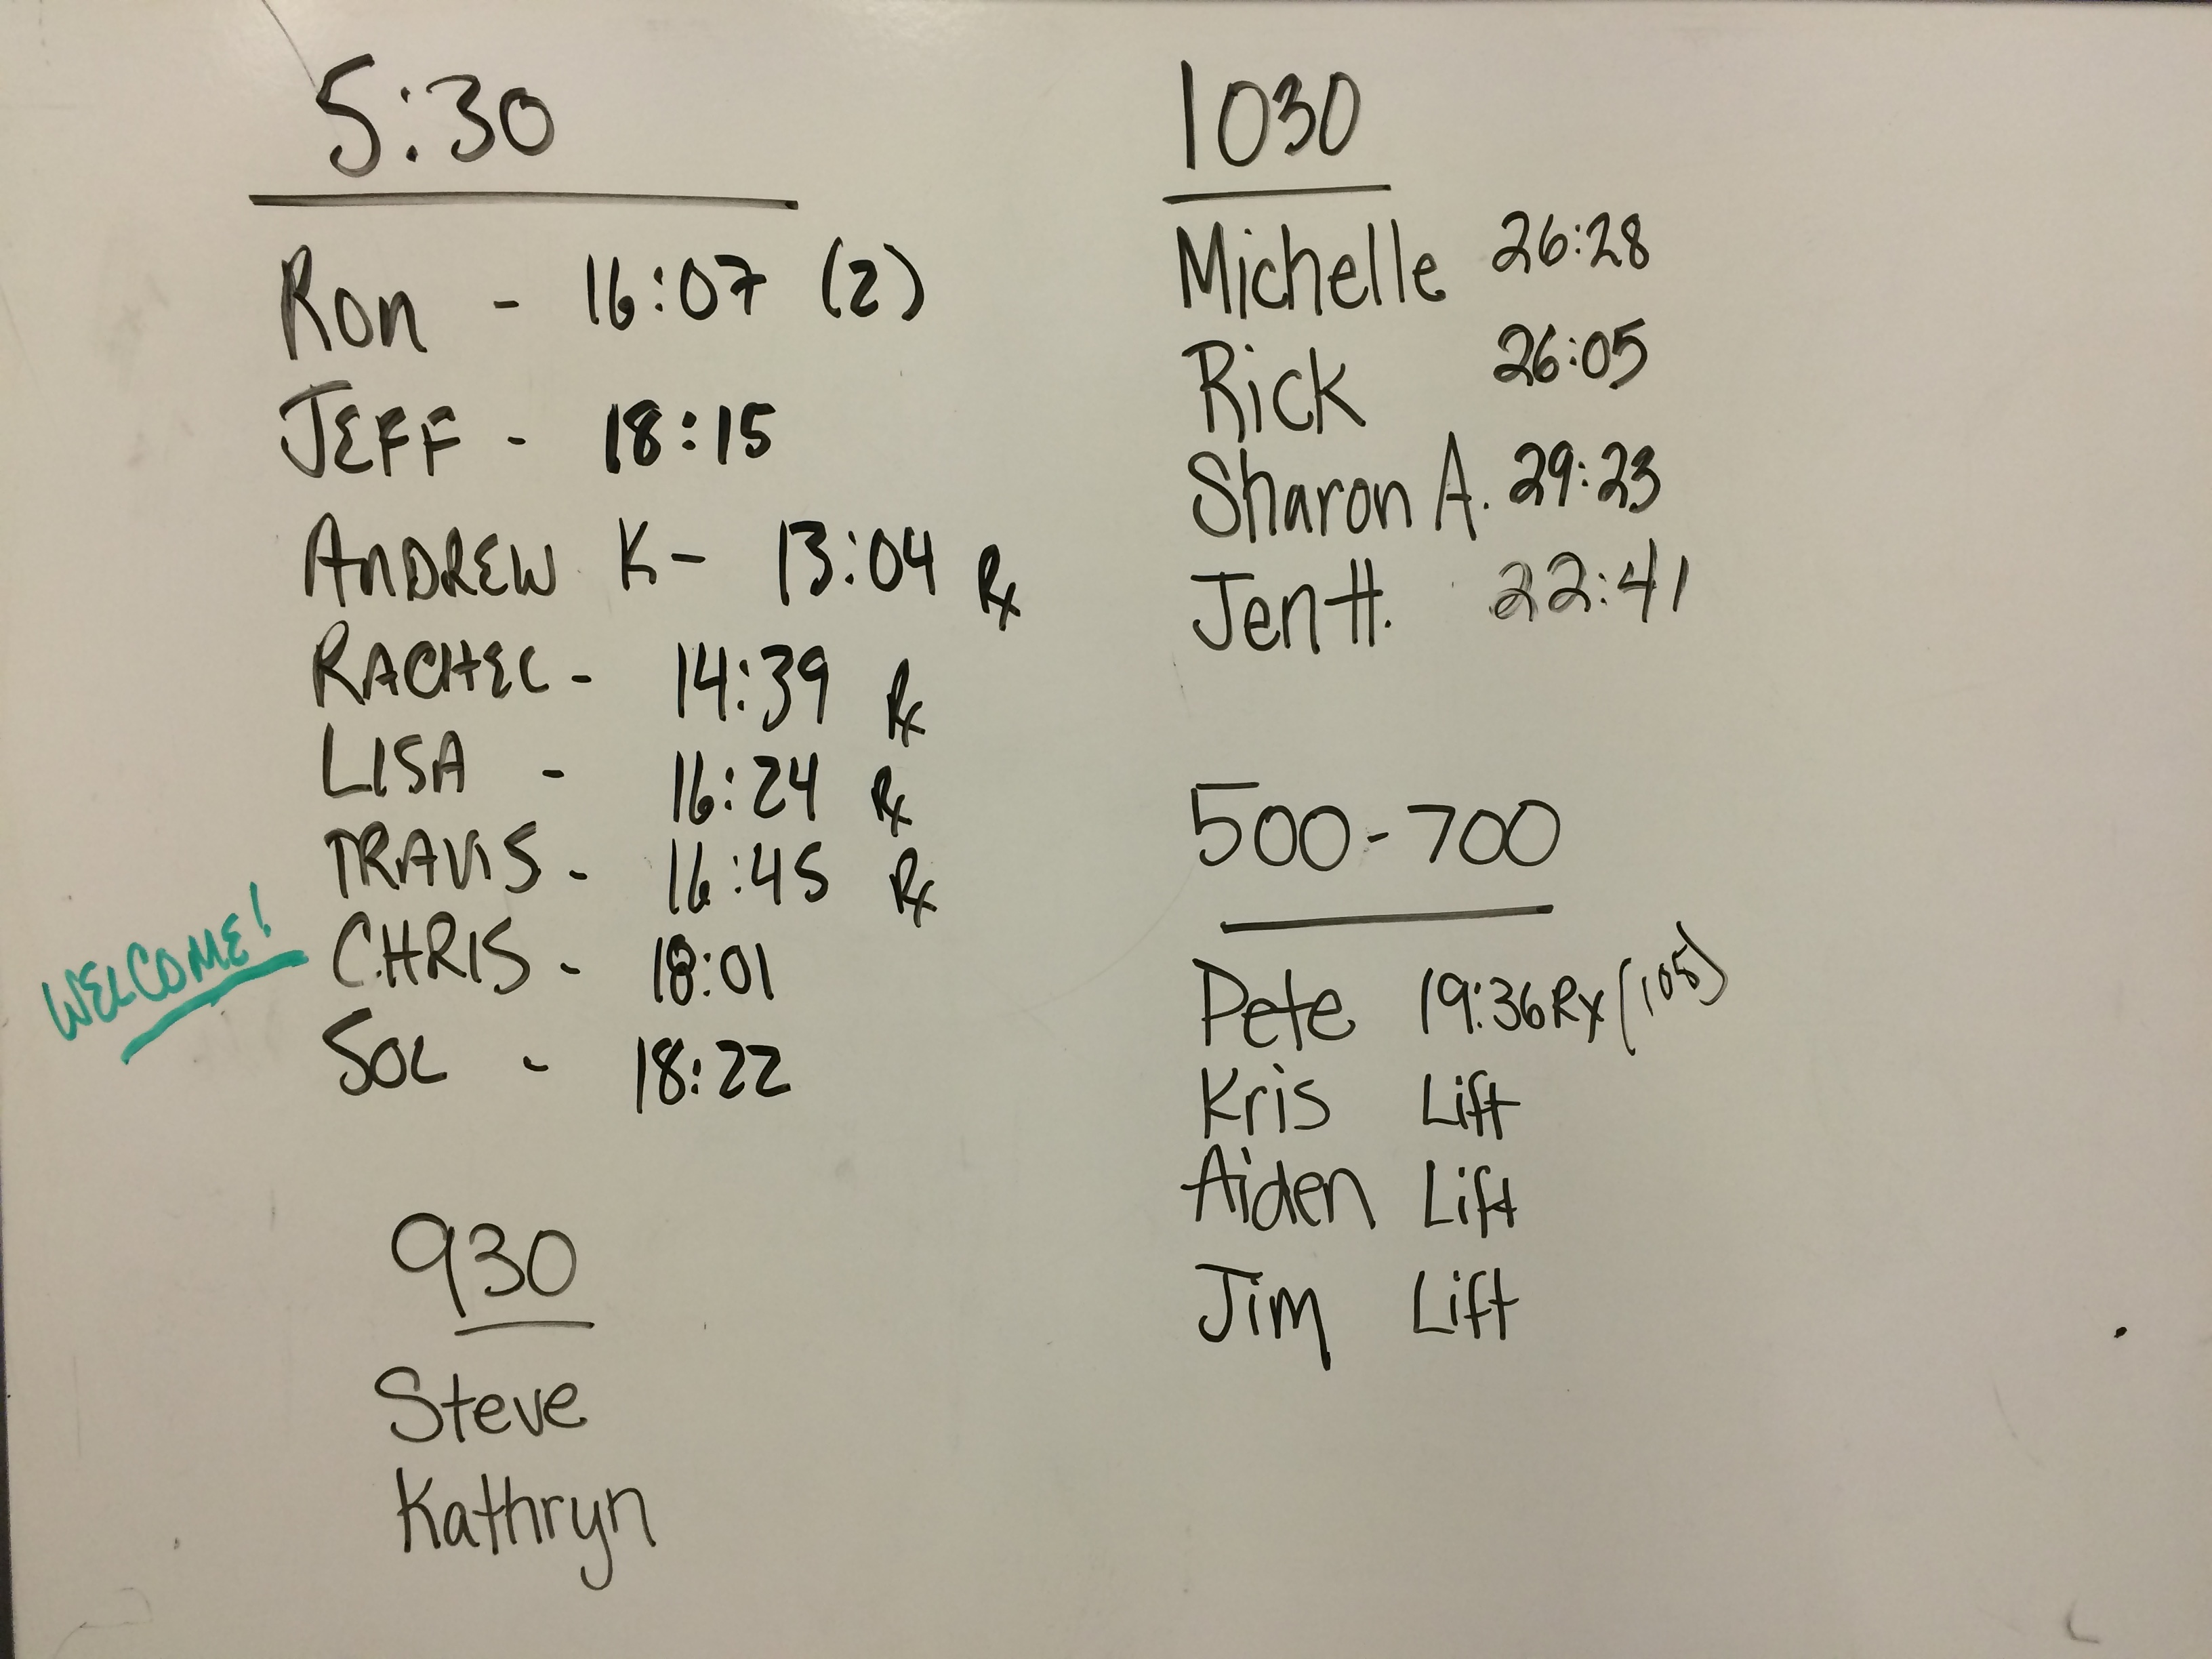 5:30
Ron - 16:07 (2)
JEFF - 18:15
ANDREW K - 13:04 Rx
RACHEL - 14:39 Rx
LISA - 16:24 Rx
TRAVIS - 16:45 Rx
WELCOME! CHRIS - 18:01
SOL - 18:22
930
Steve
Kathryn
1030
Michelle 26:28
Rick 26:05
Sharon A. 29:23
Jen H. 22:41
500-700
Pete 19:36 Rx (105)
Kris Lift
Aiden Lift
Jim Lift